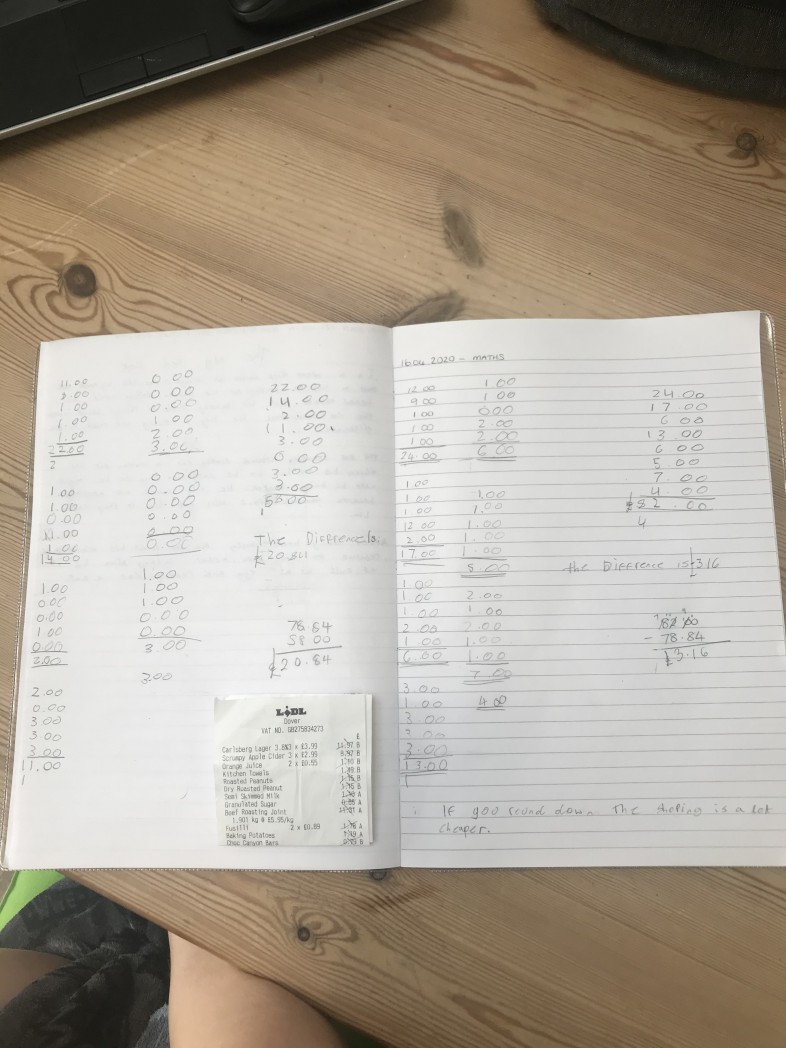 11.00
8.00
1 00
1 00
1.00
22.00
2
1.00
1.00
0.00
11.00
1.00
14.00
1.00
0.00
0.00
1 00
0.00
2.00
2.00
0.00
3 00
3 00
3 00
11.00
1
0 00
0 00
0.00
1 00
2 00
3.00
0 00
0.00
0 00
0 00
0.00
0.00
1.00
1 00
1.00
0.00
0.00
3.00
3.00
22.00
14.00
2.00
11.00
3.00
0.00
3.00
3.00
58.00
1
The Differencls:
£20.84
78.84
58 00
£20.84
LiDL
Dover
VAT NO. GB275834273
£
Carlsberg Lager 3.8%3 x £3.99 11.97 B
Scrumpy Apple Cider 3 x £2.99 8.97 B
Orange Juice 2 x £0.55 1.10 B
Kitchen Towels
Roasted Peanuts
Dry Roasted Peanut
Semi Skimmed Milk
Granulated Sugar
Beef Roasting Joint
1.901 kg @ £5.95/kg
Fusilli 2 x £0.89
Baking Potatoes
Choc Canyon Bars
16 04 2020 - MATHS
12 00
9 00
1 00
1 00
1 00
24.00
1.00
1 00
1 00
12 00
2 00
17 00
1 00
1 00
1 00
2 00
1 00
6.00
3 00
1 00
3 00
3 00
3 00
13.00
1
1 00
1 00
0 00
2 00
2.00
6 00
1.00
1.00
1.00
1.00
1.00
5.00
2 00
1 00
2.00
1.00
1.00
7 00
4 00
24 00
17 00
6 00
13 00
6 00
5 00
7 00
4 00
£82.00
4
the Difference is £3.16
82.00
- 78.84
£3.16
∴ IF you round down The shoping is a lot
cheaper.